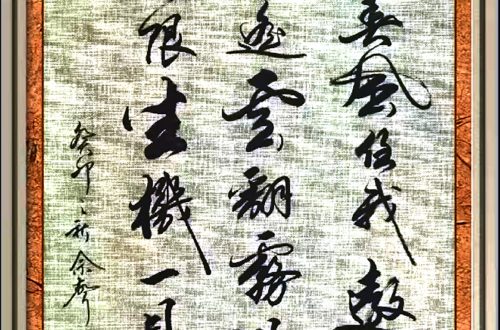 春風任我遨
遥雲翻霧
限生機一
癸卯之秋 余